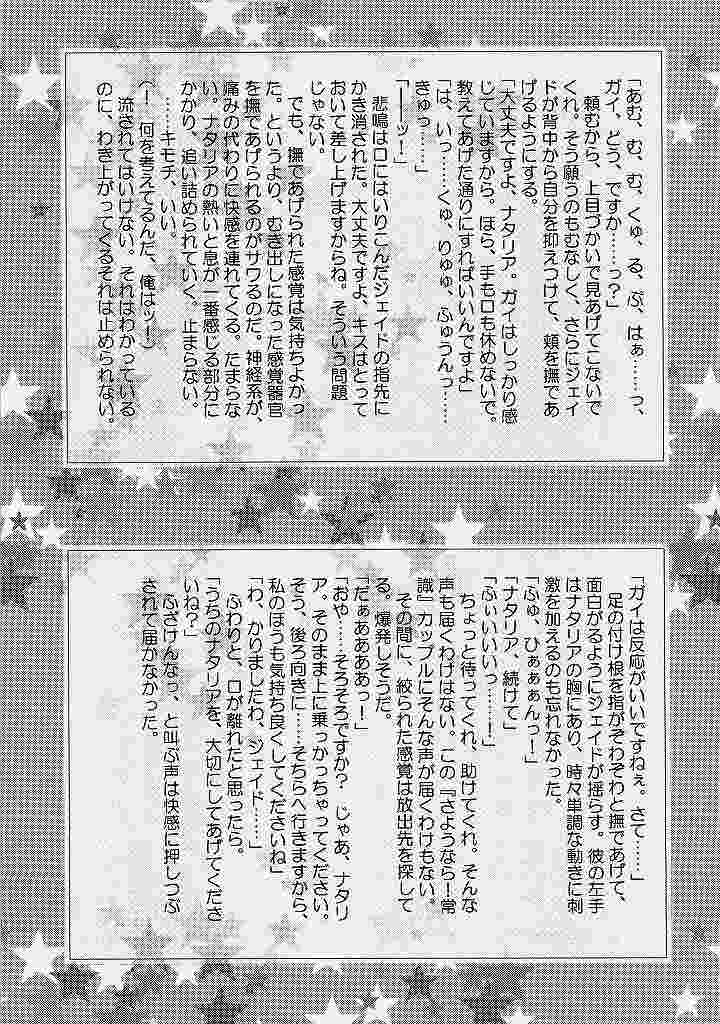 「あむ、む、む、くゅ、る、ぷ、はぁ……っ、
ガイ、どう、ですか……っ?」
　頼むから、上目づかいで見あげてこないで
くれ。そう願うのもむなしく、さらにジェイ
ドが背中から自分を抑えつけて、頬を撫であ
げるようにする。
「大丈夫ですよ、ナタリア。ガイはしっかり感
じていますから。ほら、手も口も休めないで。
教えてあげた通りにすればいいんですよ」
「は、いっ……くゅ、りゅゅ、ふゅうんっ……
きゅっ……」
「――ッ!」
　悲鳴は口にはいりこんだジェイドの指先に
かき消された。大丈夫ですよ、キスはとって
おいて差し上げますからね。そういう問題
じゃない。
　でも、撫であげられた感覚は気持ちよかっ
た。というより、むき出しになった感覚器官
を撫であげられるのがサワるのだ。神経系が、
痛みの代わりに快感を連れてくる。たまらな
い。ナタリアの熱いと息が一番感じる部分に
かかり、追い詰められていく。止まらない。
　……キモチ、いい。
(―! 何を考えてるんだ、俺はッ!)
　流されてはいけない。それはわかっている
のに、わき上がってくるそれは止められない。
「ガイは反応がいいですねぇ。さて……」
　足の付け根を指がぞわぞわと撫であげて、
面白がるようにジェイドが揺らす。彼の左手
はナタリアの胸にあり、時々単調な動きに刺
激を加えるのも忘れなかった。
「ふゅ、ひぁぁぁんっ!」
「ナタリア、続けて」
「ふぃいいいっ……!」
　ちょっと待ってくれ、助けてくれ。そんな
声も届くわけはない。この『さようなら!常
識』カップルにそんな声が届くわけもない。
　その間に、絞られた感覚は放出先を探して
る。爆発しそうだ。
「だぁああああっ!」
「おや……そろそろですか?　じゃあ、ナタリ
ア。そのまま上に乗っかっちゃってください。
そう、後ろ向きに……そちらへ行きますから、
私のほうも気持ち良くしてくださいね」
「わ、かりましたわ、ジェイド……」
　ふわりと、口が離れたと思ったら。
「うちのナタリアを、大切にしてあげてくださ
いね?」
　ふざけんなっ、と叫ぶ声は快感に押しつぶ
されて届かなかった。